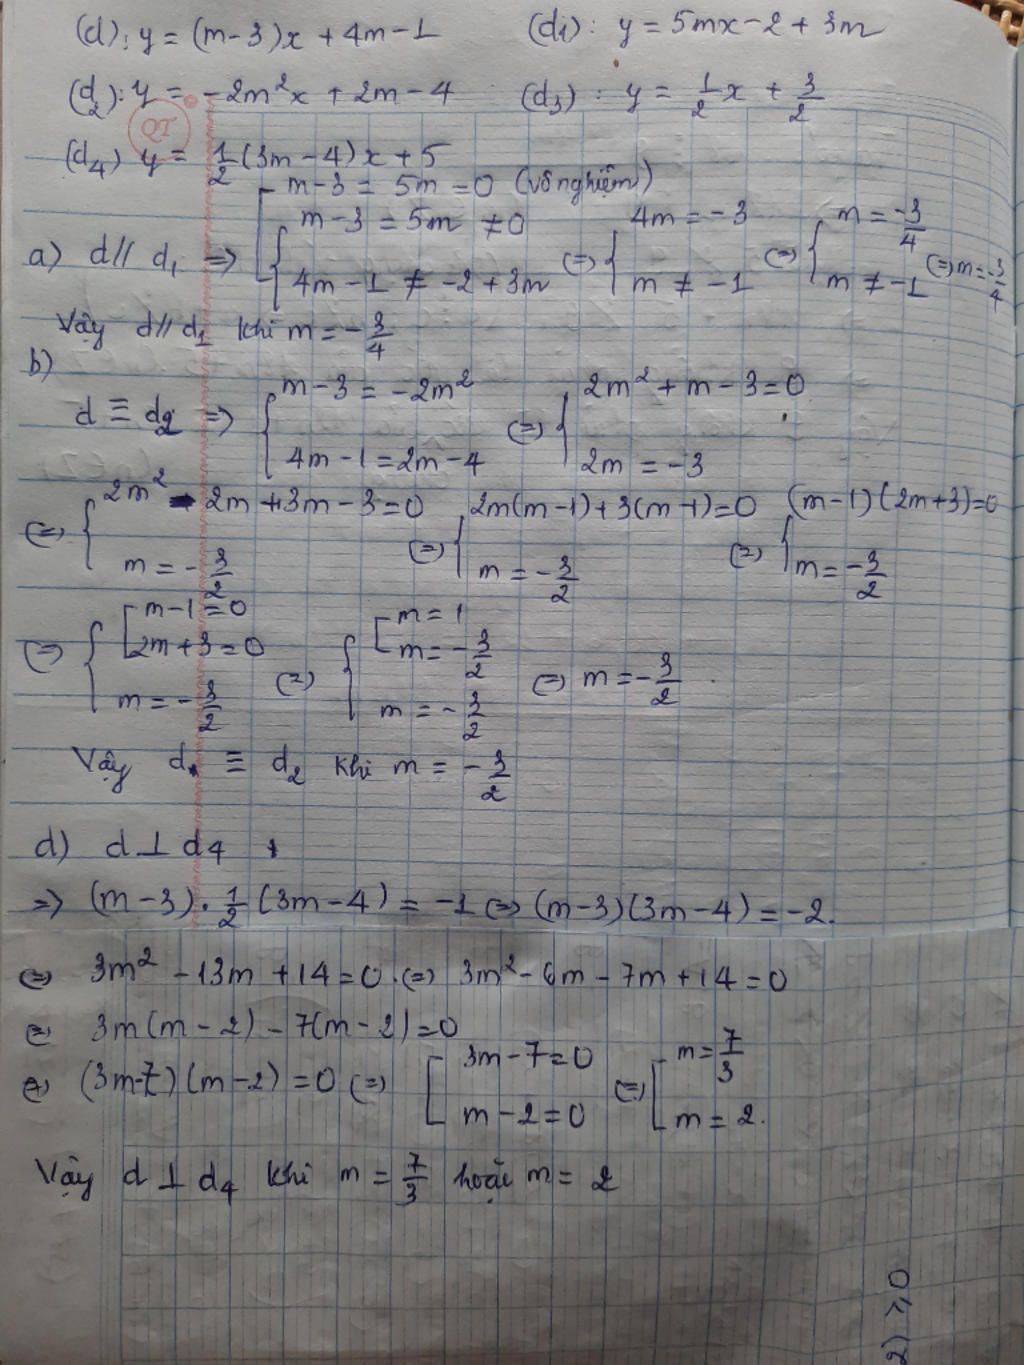 (d): y = (m-3)x + 4m-1   (d1): y = 5mx-2+3m
(d2): y = -2m²x + 2m-4   (d3): y = 1/2 x + 3/2
(d4) y = 1/2 (3m-4)x + 5
a) d // d1 => [ m-3 = 5m = 0 (vô nghiệm) { m-3 = 5m ≠ 0 4m-1 ≠ -2+3m <=> { 4m = -3 m ≠ -1 <=> { m = -3/4 m ≠ -1 <=> m = -3/4
Vậy d // d1 khi m = -3/4
b)
d ≡ d2 => { m-3 = -2m² 4m-1 = 2m-4 <=> { 2m² + m-3 = 0 2m = -3
<=> { 2m² - 2m + 3m-3 = 0 m = -3/2 <=> { 2m(m-1) + 3(m-1) = 0 m = -3/2 <=> { (m-1)(2m+3) = 0 m = -3/2
<=> { [ m-1 = 0 2m+3 = 0 m = -3/2 <=> { [ m = 1 m = -3/2 m = -3/2 <=> m = -3/2
Vậy d ≡ d2 khi m = -3/2
d) d ⊥ d4
=> (m-3) . 1/2 (3m-4) = -1 <=> (m-3)(3m-4) = -2.
<=> 3m² - 13m + 14 = 0 . <=> 3m² - 6m - 7m + 14 = 0
<=> 3m(m-2) - 7(m-2) = 0
<=> (3m-7)(m-2) = 0 <=> [ 3m-7 = 0 m-2 = 0 <=> [ m = 7/3 m = 2.
Vậy d ⊥ d4 khi m = 7/3 hoặc m = 2
2) ≥ 0